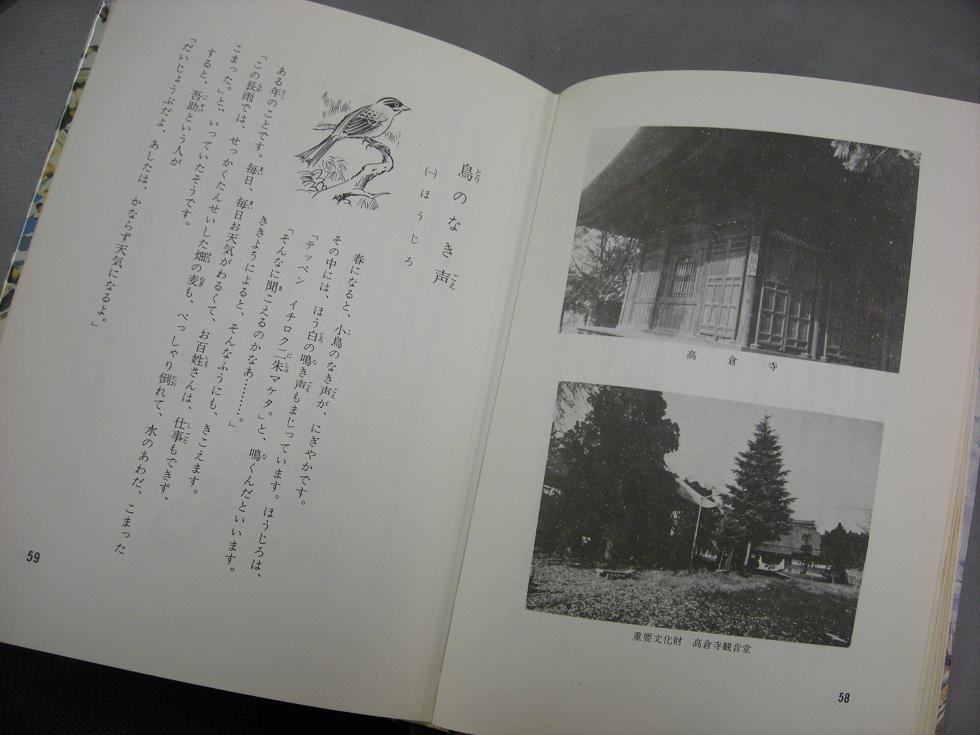 高倉寺
重要文化財　高倉寺観音堂
58
鳥のなき声
㈠ほうじろ
春になると、小鳥のなき声が、にぎやかです。
その中には、ほう白の鳴き声もまじっています。ほうじろは、
「テッペン　イチロク二朱マケタ。」と、鳴くんだといいます。
「そんなに聞こえるのかなあ………。」
ききようによると、そんなふうにも、きこえます。
ある年のことです。毎日、毎日お天気がわるくて、お百姓さんは、仕事もできず、
「この長雨では、せっかくたんせいした畑の麦も、べっしゃり倒れて、水のあわだ、こまった
こまった。」と、いっていたそうです。
すると、吾助という人が
「だいじょうぶだよ、あしたは、かならず天気になるよ。」
59